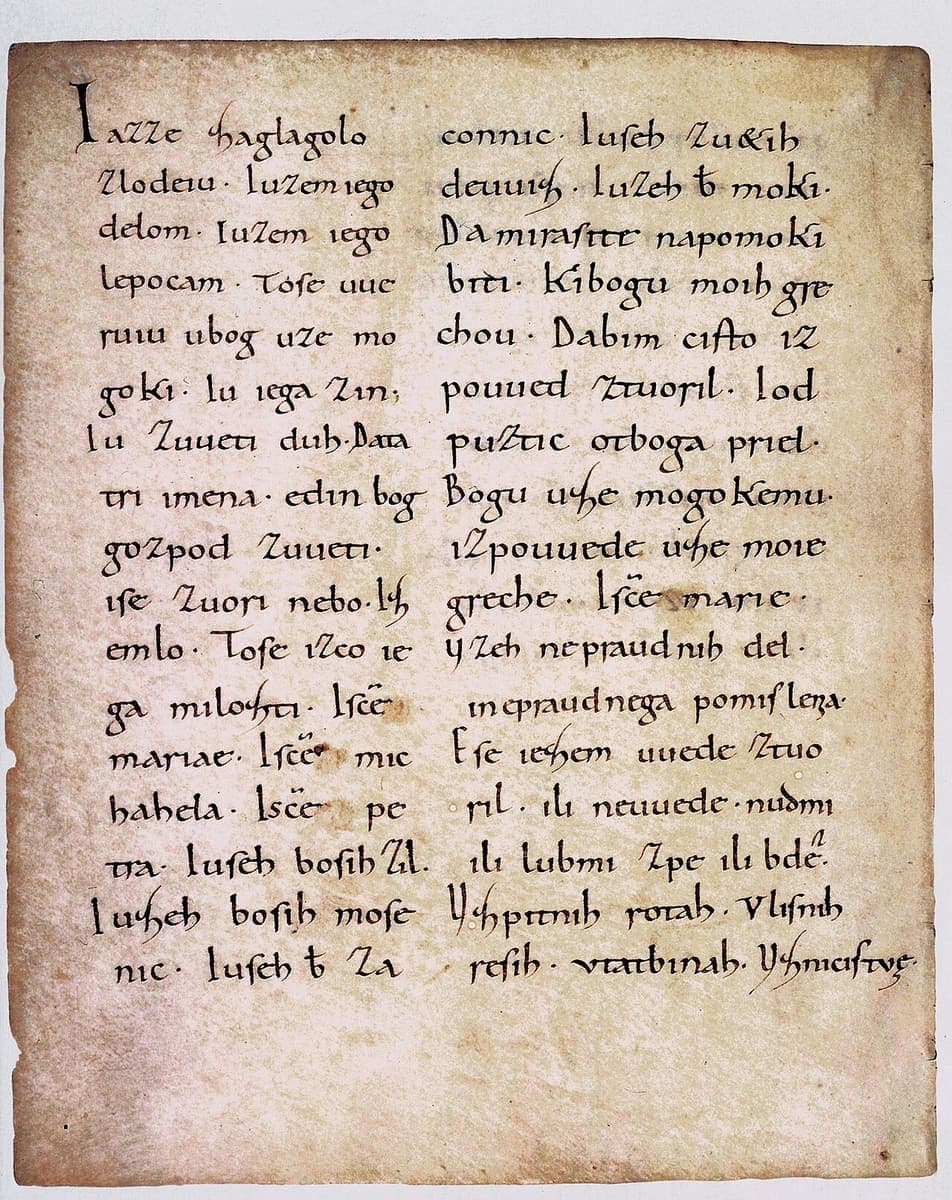 Iazze zaglagolo
zlodeiu· Iuzem iego
delom· Iuzem iego
lepocam· Tose uue
ruiu ubog uze mo
goki· Iu iega zin,
Iu zuueti duh· Data
tri imena· edin bog
gozpod zuueti·
ise zuori nebo· Iz
emlo· Tose izco ie
ga miloztí· Isc̄e
mariae· Isc̄e mic
hahela· Isc̄e pe
tra· Iuseh bosih zil.
Iuzeh bosih mose
nic· Iuseh b̄ za
connic· Iuseh zu&ih
deuuiz· Iuzeh b̄ moki·
Da mirasite napomoki
biti· Kibogu moih gre
chou· Dabim cisto iz
pouued ztuoril· Iod
puztic otboga priel·
Bogu uze mogokemu·
izpouuede uze moie
greche· Isc̄e marie·
Uzeh nepraudnih del·
inepraudnega pomislenza·
Ese iezem uuede ztuo
ril· ili neuuede· nudmi
ili lubmi zpe ili bdeͬ·
Uzpitnih rotah· Vlisnih
resih· vtatbinah· Uznicistuę·